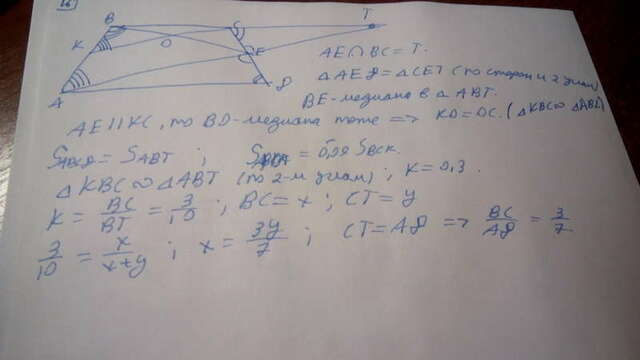 16
B C T
K O E
A D
AE∩BC=T.
ΔAED=ΔCET (по сторон и 2 углам)
BE-медиана в ΔABT.
AE||KC, то BO-медиана тоже => KO=OC. (ΔKBC∾ΔABT)
S_ABCD = S_ABT ; = 0,09 S_BCK.
ΔKBC∾ΔABT (по 2-м углам) ; K=0,3.
K = BC/BT = 3/10 ; BC=x ; CT=y
3/10 = x/x+y ; x = 3y/7 ; CT=AD => BC/AD = 3/7